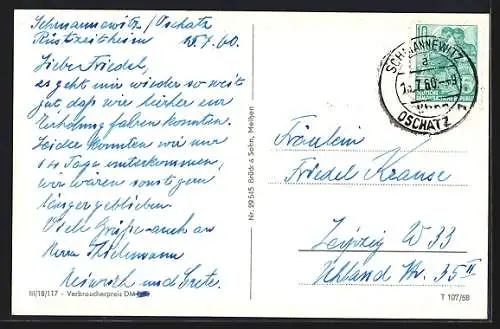 Schmannewitz/Oschatz
Rüstzeitheim 15.7.60.
Lieber Friedel,
es geht mir wieder so weit
gut, daß wir hierher zur
Erholung fahren konnten.
Leider konnten wir nur
14 Tage unterkommen,
wir wären sonst gern
länger geblieben.
Viele Grüße auch an
Herrn
Heinrich und Grete.
III/18/117 - Verbraucherpreis DM
Nr. 59515 Brück & Sohn, Meißen
10
SCHMANNEWITZ
a
7.60.-9
OSCHATZ
Fräulein
Friedel Krause
Leipzig W 33
Uhland Str. 35 II
T 107/58